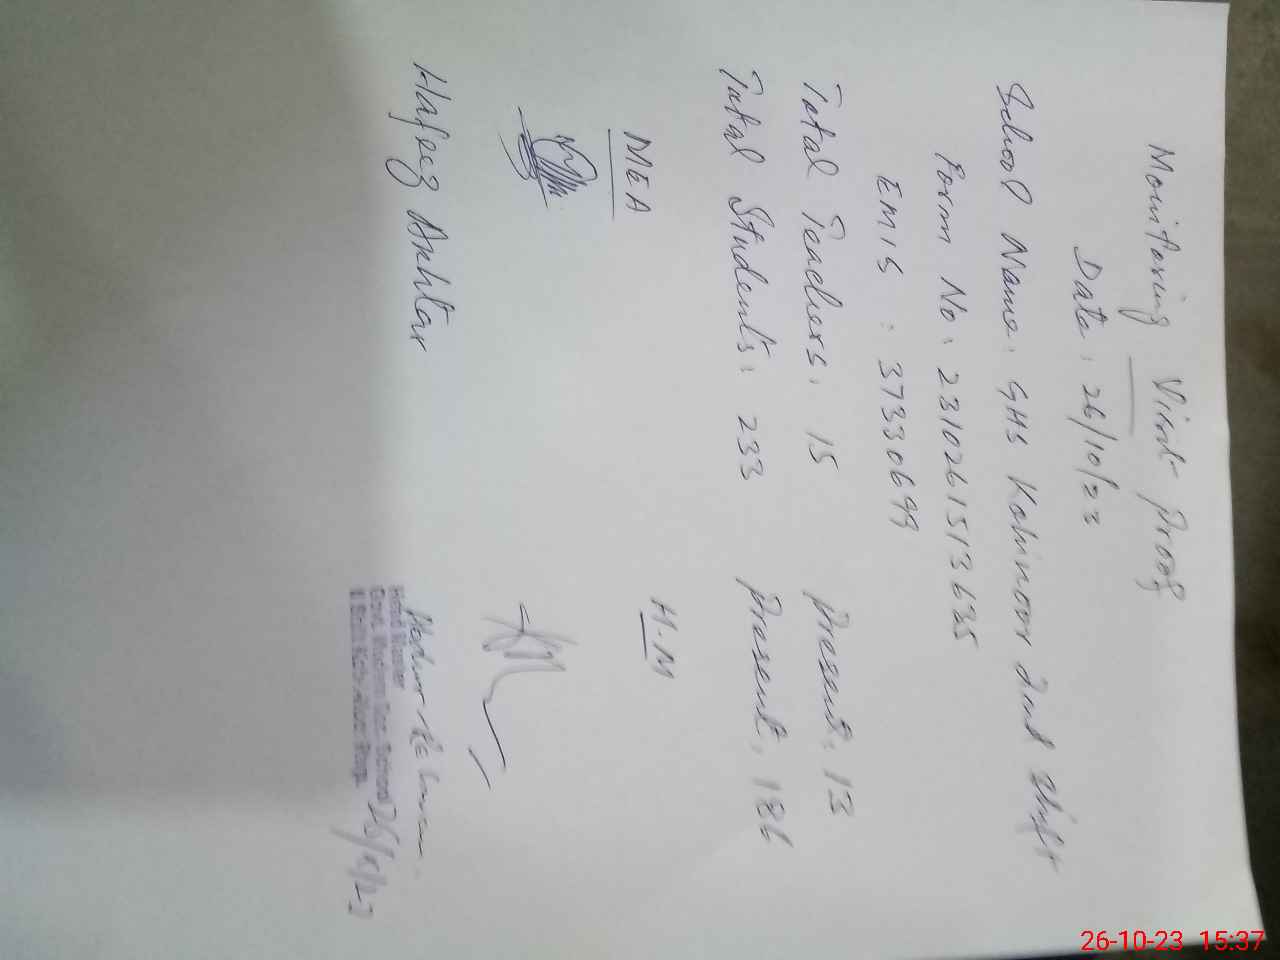 Monitoring Visit Proof
Date: 26/10/23
School Name: GHS Kohinoor 2nd Shift
Form No: 2310261513635
EMIS: 37330699
Total Teachers: 15 Present: 13
Total Students: 233 Present: 186
MEA H.M
Hafeez Akhtar
Head Master
26-10-23 15:37